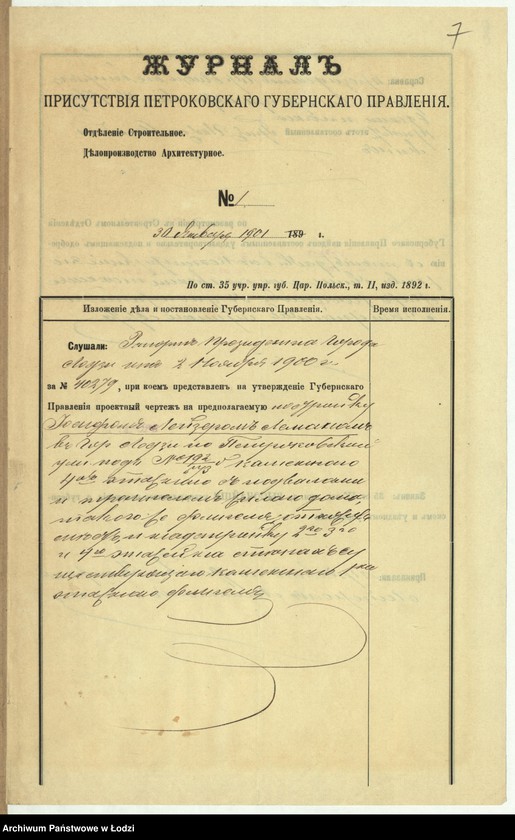 7
ЖУРНАЛЪ
ПРИСУТСТВІЯ ПЕТРОКОВСКАГО ГУБЕРНСКАГО ПРАВЛЕНІЯ.
Отдѣленіе Строительное.
Дѣлопроизводство Архитектурное.
№ 1
30 Января 1901 189 г.
По ст. 35 учр. упр. губ. Цар. Польск., т. II, изд. 1892 г.
Изложеніе дѣла и постановленіе Губернскаго Правленія. Время исполненія.
Слушали: Рапортъ Президента города
Лодзи отъ 2 Ноября 1900 г.
за № 40279, при коемъ представленъ на утвержденіе Губернскаго
Правленія проектный чертежъ на предполагаемую постройку
въ гор. Лодзи по Петроковской
ул. подъ № 192 каменнаго
4хъ этажнаго съ подвалами
и жилаго дома,
такого же флигеля,
и надстройку 2го 3го
и 4го этажей на стѣнахъ су
ществующаго каменнаго 1но
этажнаго флигеля
Archiwum Państwowe w Łodzi